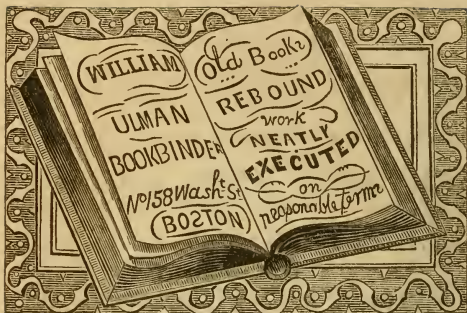 WILLIAM
ULMAN
BOOKBINDER
No 158 Washt St
BOSTON
Old Books
REBOUND
work
NEATLY
EXECUTED
on
reasonable Terms